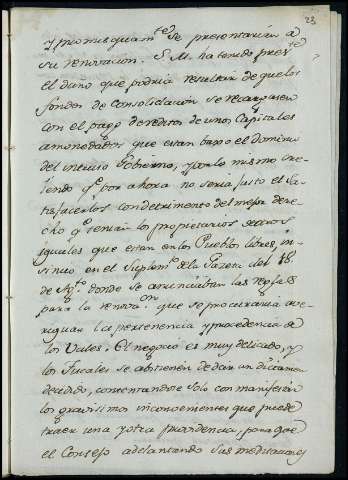 23
y promiscuam.te se presentarian a
su renovacion. S. M. ha tenido pres.te
el daño que podria resultar de que los
fondos de Consolidacion se recargasen
con el pago de reditos de unos Capitales
amonedados que estan baxo el dominio
del intruso Govierno, y por lo mismo cre-
iendo q.e por ahora no seria justo el sa-
tisfacerlos con detrimento del mejor dere-
cho q.e tenian los propietarios de otros
iguales que estan en los Pueblos libres, in-
sinuó en el Suplem.to de la Gazeta del 18
de Ag.to donde se anunciaban las reglas
para la renova.on que se procuraria ave-
riguar la pertenencia y procedencia de
los Vales. El negocio es muy delicado, y
los Fiscales se abstienen de dar un dictamen
decidido, contentandose solo con manifestar
los gravisimos inconvenientes que puede
traer una y otra providencia, para que
el Consejo adelantando sus meditaciones